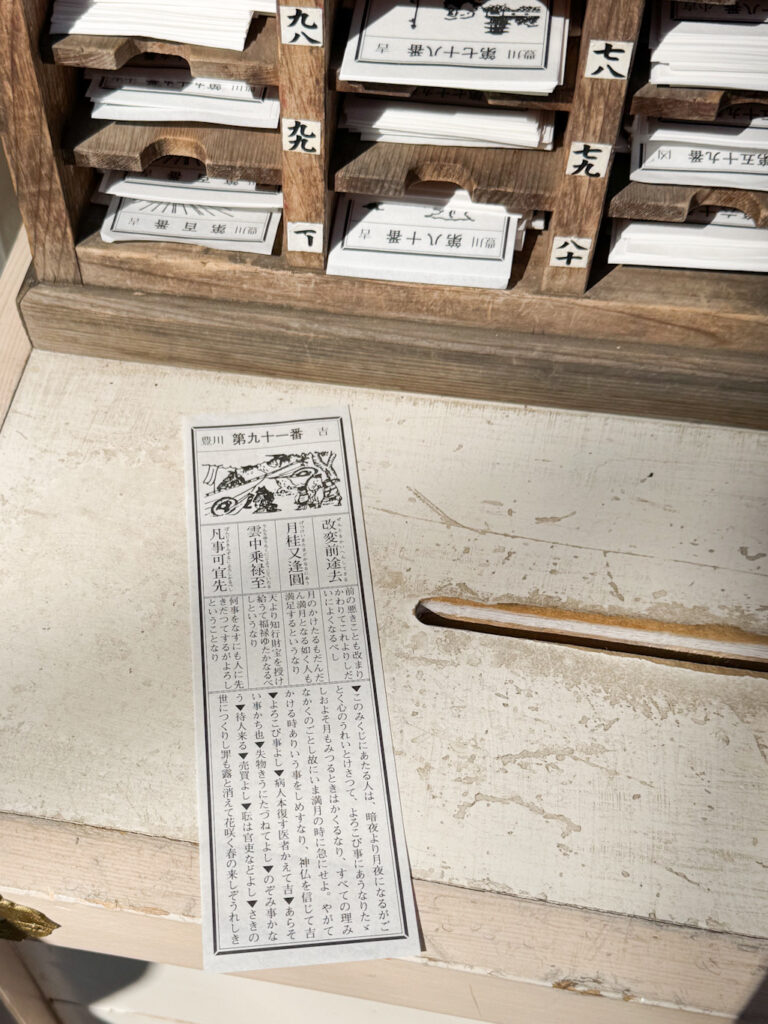 九八
九九
七八
七九
八十
豊川 第七十八番 吉
豊川 第八十番 吉
豊川 第百番 吉
第五十九番 凶
豊川 第九十一番 吉
改変前途去
月桂又逢圓
雲中乗禄至
凡事可宜先
前の悪きことも改まり
かわりてこれよりしだ
いによくなるべし
月のかけたるもだんだ
ん満月となる如く人も
満足するというなり
天より知行財宝を授け
給うて福禄ゆたかなるべ
しというなり
何事をなすにも人に先
きだつてするがよろし
ということなり
▼このみくじにあたる人は、暗夜より月夜になるがご
とく心のうれいとけさつて、よろこび事にあうなりたゞ
しおよそ月もみつるときはかくるなり、すべての理み
なかくのごとし故にいま満月の時に急にせよ。やがて
かける時ありいう事をしめすなり、神仏を信じて吉
▼よろこび事よし▼病人本復す医者かえて吉▼あらそ
い事かち也▼失物きうにたづねてよし▼のぞみ事かな
う▼待人来る▼売買よし▼転は官吏などよし▼さきの
世につくりし罪も露と消えて花咲く春の来しぞうれしき